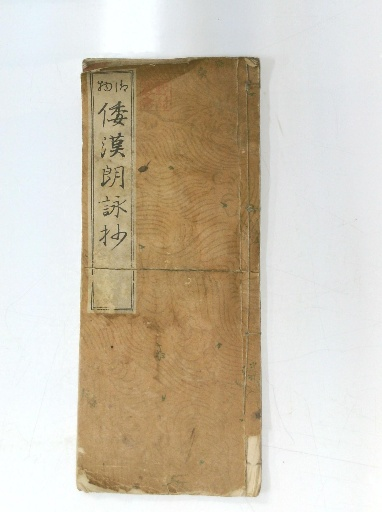 御物
倭漢朗詠抄